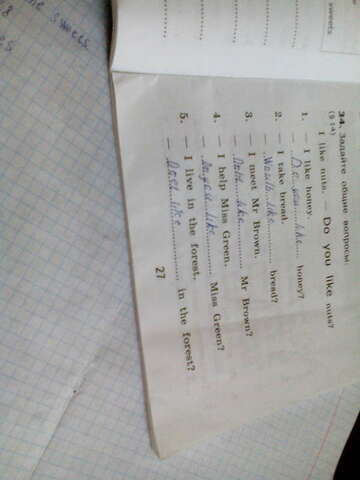 sweets
sweets
34. Задайте общие вопросы:
I like nuts. — Do you like nuts?
1. — I like honey.
— Do you like honey?
2. — I take bread.
— Would like bread?
3. — I meet Mr Brown.
— like Mr Brown?
4. — I help Miss Green.
— like Miss Green?
5. — I live in the forest.
— in the forest?
27